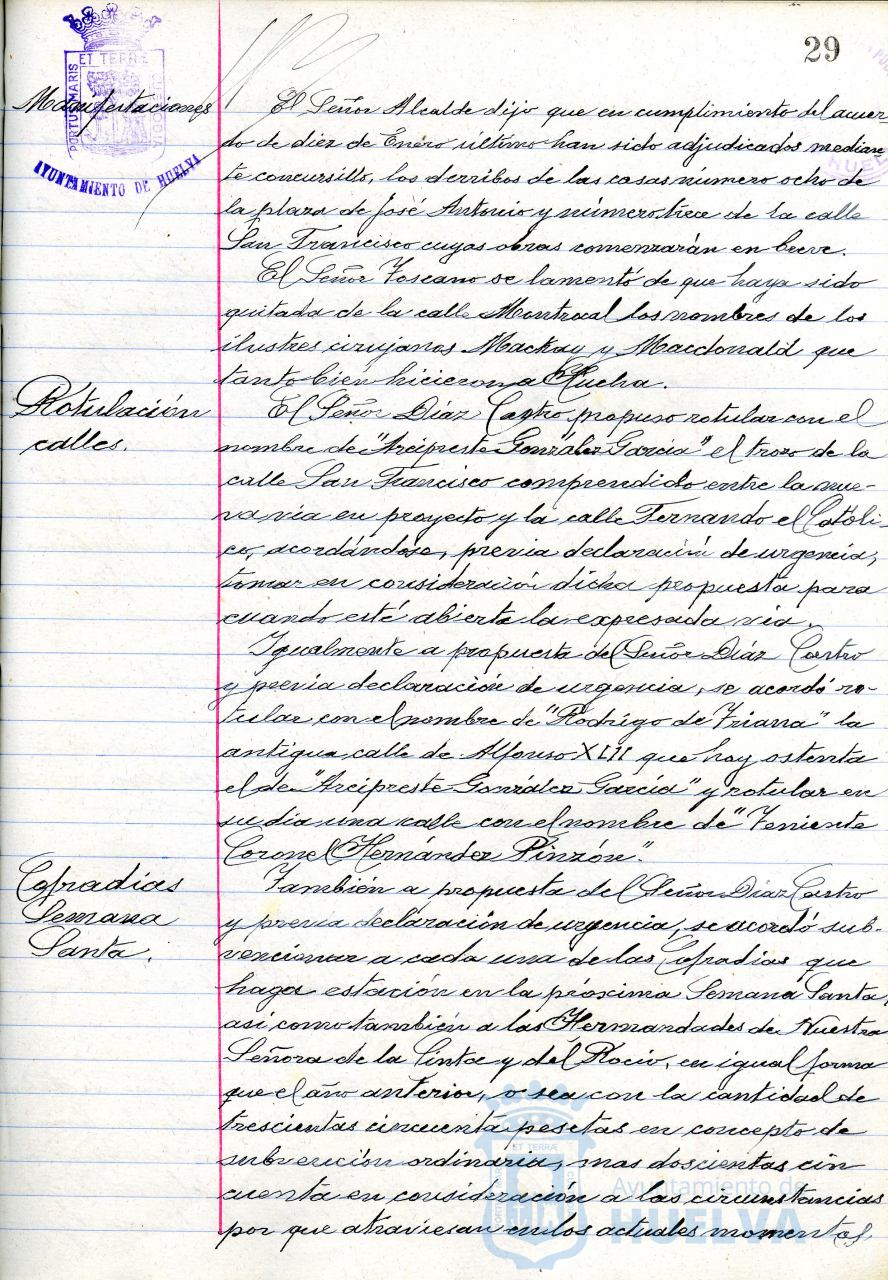 29
PORTUS MARIS ET TERRÆ CUSTODIA
AYUNTAMIENTO DE HUELVA
HUELVA
Manifestaciones
El Señor Alcalde dijo que en cumplimiento del acuer-
do de diez de Enero último han sido adjudicados median
te concursillo, los derribos de las casas número ocho de
la plaza de José Antonio y número trece de la calle
San Francisco cuyas obras comenzarán en breve.
El Señor Toscano se lamentó de que haya sido
quitada de la calle Montrocal los nombres de los
ilustres cirujanos Mackay y Macdonald que
tanto bien hicieron a Huelva.
Rotulación
calles.
El Señor Díaz Castro propuso rotular con el
nombre de "Arcipreste González García" el trozo de la
calle San Francisco comprendido entre la nue-
va vía en proyecto y la calle Fernando el Católi-
co, acordándose, previa declaración de urgencia,
tomar en consideración dicha propuesta para
cuando esté abierta la expresada vía.
Igualmente a propuesta del Señor Díaz Castro
y previa declaración de urgencia, se acordó ro-
tular con el nombre de "Rodrigo de Triana" la
antigua calle de Alfonso XIII que hoy ostenta
el de "Arcipreste González García" y rotular en
su día una calle con el nombre de "Teniente
Coronel Hernández Pinzón".
Cofradías
Semana
Santa.
También a propuesta del Señor Díaz Castro
y previa declaración de urgencia, se acordó sub-
vencionar a cada una de las Cofradías que
haga estación en la próxima Semana Santa,
así como también a las Hermandades de Nuestra
Señora de la Cinta y del Rocío, en igual forma
que el año anterior, o sea con la cantidad de
trescientas cincuenta pesetas en concepto de
subvención ordinaria, mas doscientas cin
cuenta en consideración a las circunstancias
por que atraviesan en los actuales momentos,
Ayuntamiento de
HUELVA